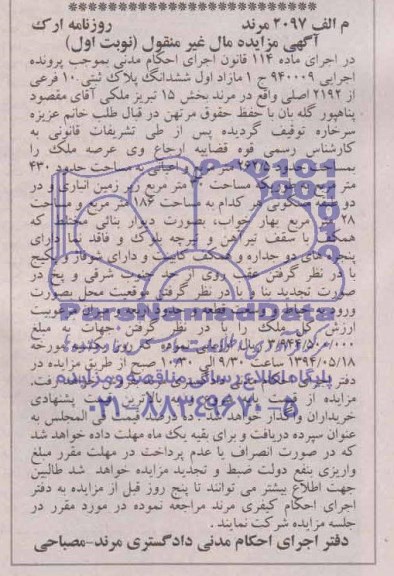 م الف ۲۰۹۷ مرند روزنامه ارک
آگهی مزایده مال غیر منقول (نوبت اول)
در اجرای ماده ۱۱۴ قانون اجرای احکام مدنی بموجب پرونده
اجرایی ۹۴۰۰۰۹ ج ۱ مازاد اول ششدانگ پلاک ثبتی ۱۰ فرعی
از ۲۱۹۲ اصلی واقع در مرند بخش ۱۵ تبریز ملکی آقای مقصود
پناهپور گله بان با حفظ حقوق مرتهن در قبال طلب خانم عزیزه
سرخاره توقیف گردیده پس از طی تشریفات قانونی به
کارشناس رسمی قوه قضاییه ارجاع وی عرصه ملک را
متر مربع و اعیانی به مساحت حدود ۴۳۰
متر مساحت متر مربع زیر زمین انباری و در
دو مسکونی هر کدام به مساحت ۱۸۶ متر مربع و مساحت
۲۸ متر مربع بهار خواب، بصورت دیوار بنائی مختلط که
همکف با سقف تیر آهن و بلوک و فاقد نما دارای
پنجره دو جداره و همکف کابینت و دارای شوفاژ و پکیج
با در نظر گرفتن عقب روی از حد جنوب شرقی و پخ در
صورت تجدید بنا و با در نظر گرفتن موقعیت محل بصورت
ورود به حیاط و وسعت قطعه و حدود اربعه و میزان مرغوبیت
ارزش کل ملک را با در نظر گرفتن جهات به مبلغ
۳/۹۴۴/۵۰۰/۰۰۰ ریال مورخه
۱۳۹۴/۰۵/۱۸ ساعت ۹/۳۰ الی ۱۰/۳۰ صبح از طریق مزایده در
دفتر اجرای احکام
مزایده از قیمت پیشنهادی
خریداران واگذار خواهد شد. ده درصد قیمت فی المجلس به
عنوان سپرده دریافت و برای بقیه یک ماه مهلت داده خواهد شد
که در صورت انصراف یا عدم پرداخت در مهلت مقرر مبلغ
واریزی بنفع دولت ضبط و تجدید مزایده خواهد شد طالبین
جهت اطلاع بیشتر می توانند تا پنج روز قبل از مزایده به دفتر
اجرای احکام کیفری مرند مراجعه نموده در مورد مقرر در
جلسه مزایده شرکت نمایند .
دفتر اجرای احکام مدنی دادگستری مرند-مصباحی
ParsNamadData
پایگاه اطلاع رسانی مناقصه و مزایده
۰۲۱-۸۸۳۴۹۶۷۰-۵